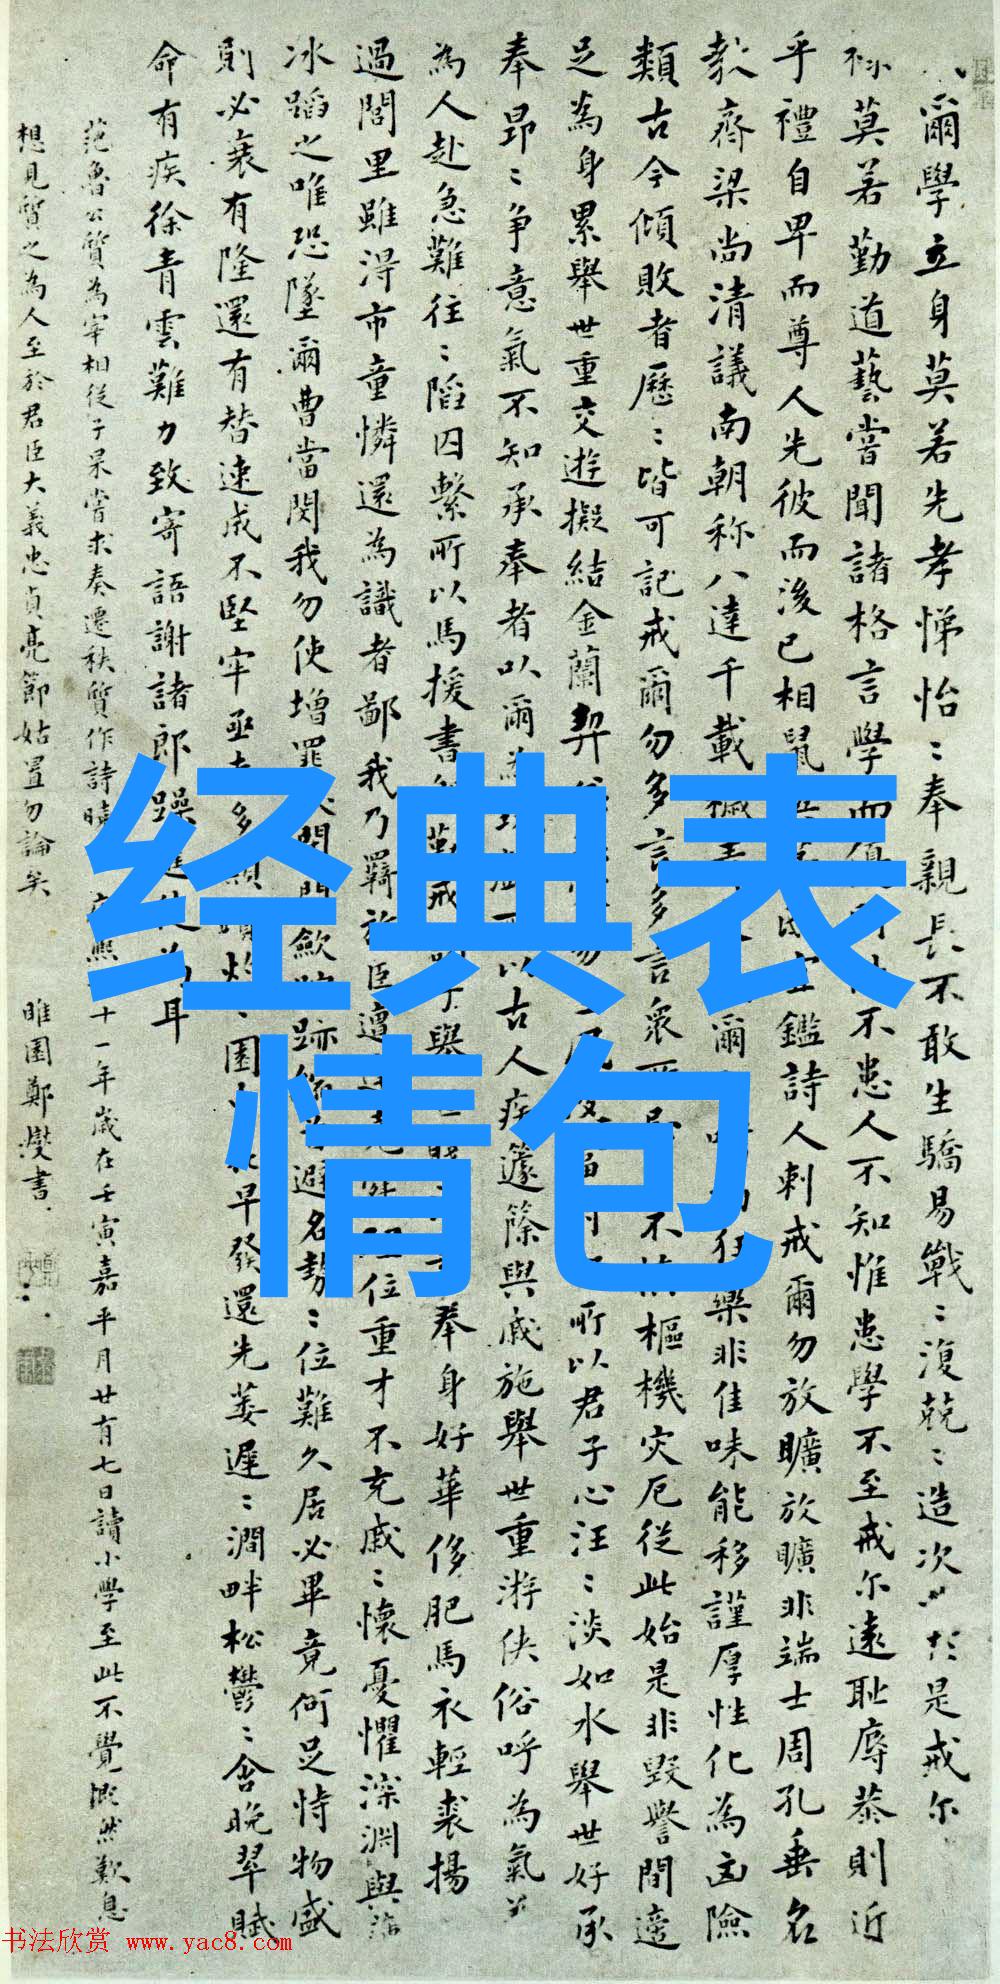 爾學立身莫若先孝悌怡〻奉親長不敢生驕易戰〻復兢〻造次於是戒尔
莫若勤道藝嘗聞諸格言學而不患人不知惟患學不至戒尔遠恥辱恭則近
乎禮自卑而尊人先彼而後己相鼠宜鑑詩人刺戒爾勿放曠放曠非端士周孔垂名
教齊梁尚清議南朝称八達千載穢爾狂藥非佳味能移謹厚性化為凶險
類古今傾敗者歷〻皆可記戒爾勿多言多言衆所忌不慎樞機灾厄從此始是非毀譽間適
足為身累舉世重交遊擬結金蘭契易風波當時所以君子心汪〻淡如水舉世好承
奉昂〻争意氣不知承奉者以爾為玩戲所以古人疾籧篨與戚施舉世重游俠俗呼為氣義
為人赴急難往〻陷囚繫所以馬援書勤戒子舉世賤奉身好華侈肥馬衣輕裘揚
過閭里雖得市童憐還為識者鄙我乃羇旅臣遭位重才不充戚〻懷憂懼深淵與薄
冰蹈之唯恐墜爾曹當閔我勿使增罪閉門斂跡避名勢〻位難久居必畢竟何足恃物盛
則必衰有隆還有替速成不堅牢亟走多顛躓灼〻園早發還先萎遲〻澗畔松鬱〻含晚翠賦
命有疾徐青雲難力致寄語謝諸郎躁進徒為耳
范魯公質為宰相從子杲嘗求奏遷秩質作詩曉熙十一年歲在壬寅嘉平月廿有七日讀小學至此不覺慨然歎息
想見質之為人至於君臣大義忠貞亮節姑置勿論矣 睢園鄭燮書
经典表
情包
书法欣赏 www.yac8.com